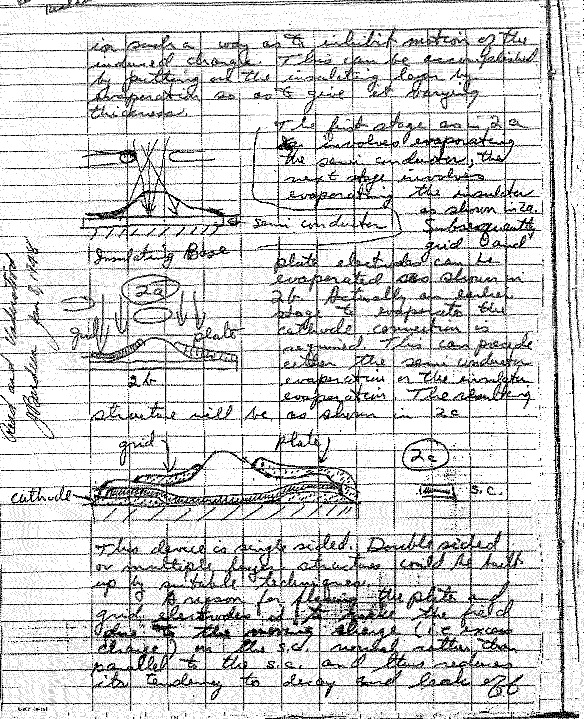 in such a way as to inhibit motion of the
induced charge. This can be accomplished
by putting on the insulating layer by
evaporation so as to give it varying
thickness
The first stage as in 2a
involves evaporating
the semi conductor, the
next stage involves
evaporating the insulator
as shown in 2a.
semi conductor
Subsequently
grid and
Insulating Base
plate electrodes can be
evaporated as shown in
2a
2b Actually an earlier
stage to evaporate the
grid
plate
cathode connection is
required. This can precede
either the semi conductor
2b
evaporation or the insulator
evaporation. The resulting
structure will be as shown in 2c
Read and understood
J Bardeen Jan 8, 1948
grid
plate
2c
cathode
S.C.
This device is single sided. Double sided
or multiple layer structures could be built
up by suitable techniques.
A reason for placing the plate and
grid electrodes is to make the field
due to the moving charge (i.e. excess
charge) in the s.c. normal rather than
parallel to the s.c. and thus reduces
its tendency to decay and leak off